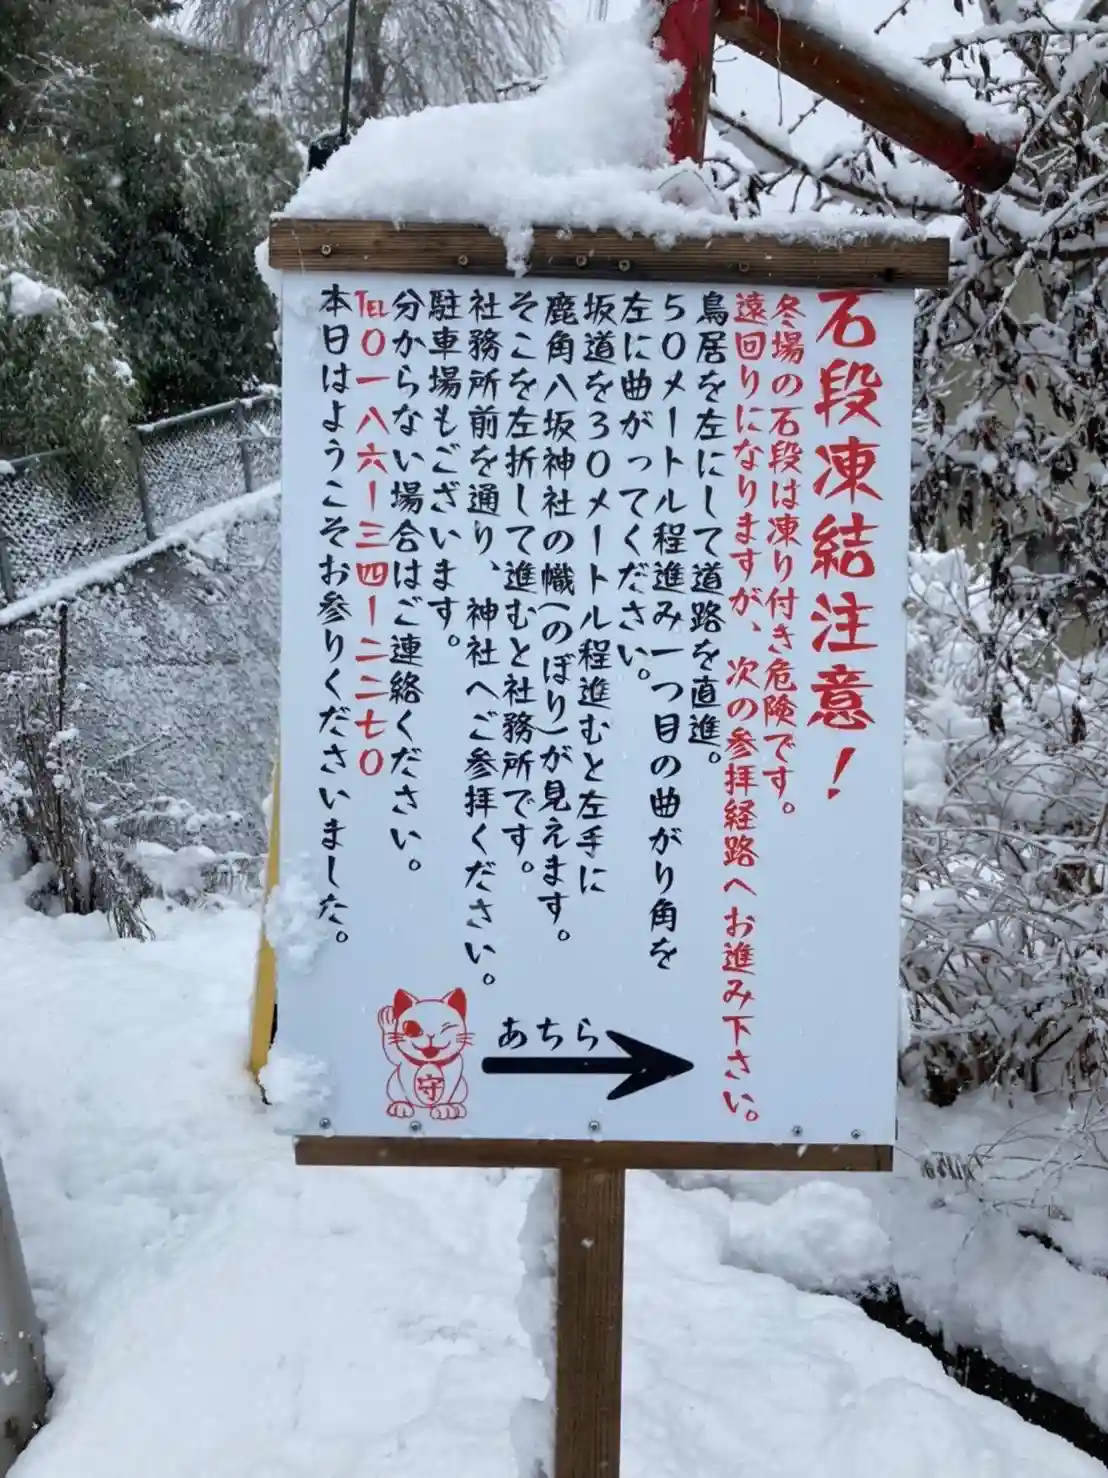 石段凍結注意！
冬場の石段は凍り付き危険です。
遠回りになりますが、次の参拝経路へお進み下さい。
鳥居を左にして道路を直進。
５０メートル程進み一つ目の曲がり角を
左に曲がってください。
坂道を３０メートル程進むと左手に
鹿角八坂神社の幟（のぼり）が見えます。
そこを左折して進むと社務所です。
社務所前を通り、神社へご参拝ください。
駐車場もございます。
分からない場合はご連絡ください。
TEL０一八六ー三四ー二二七０
本日はようこそお参りくださいました。
あちら
守